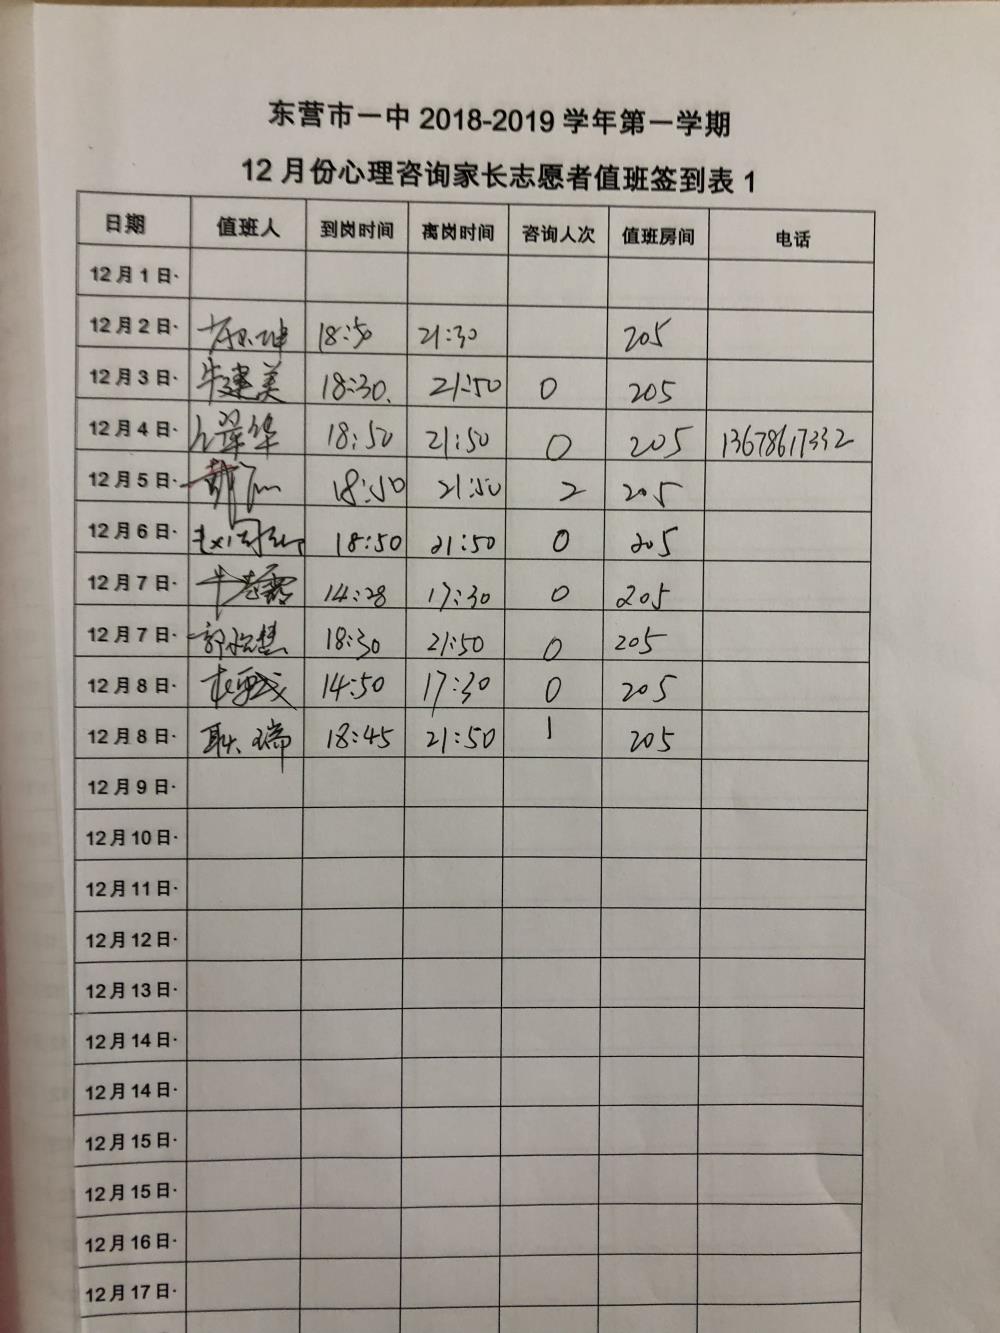 东营市一中 2018-2019 学年第一学期
12 月份心理咨询家长志愿者值班签到表 1
日期 值班人 到岗时间 离岗时间 咨询人次 值班房间 电话
12 月 1 日·
12 月 2 日· 18:50 21:30 205
12 月 3 日· 牛建美 18:30. 21:50 0 205
12 月 4 日· 18:50 21:50 0 205 13678617332
12 月 5 日· 18:50 21:50 2 205
12 月 6 日· 18:50 21:50 0 205
12 月 7 日· 14:28 17:30 0 205
12 月 7 日· 18:30 21:50 0 205
12 月 8 日· 14:50 17:30 0 205
12 月 8 日· 耿瑞 18:45 21:50 1 205
12 月 9 日·
12 月 10 日·
12 月 11 日·
12 月 12 日·
12 月 13 日·
12 月 14 日·
12 月 14 日·
12 月 15 日·
12 月 15 日·
12 月 16 日·
12 月 17 日·